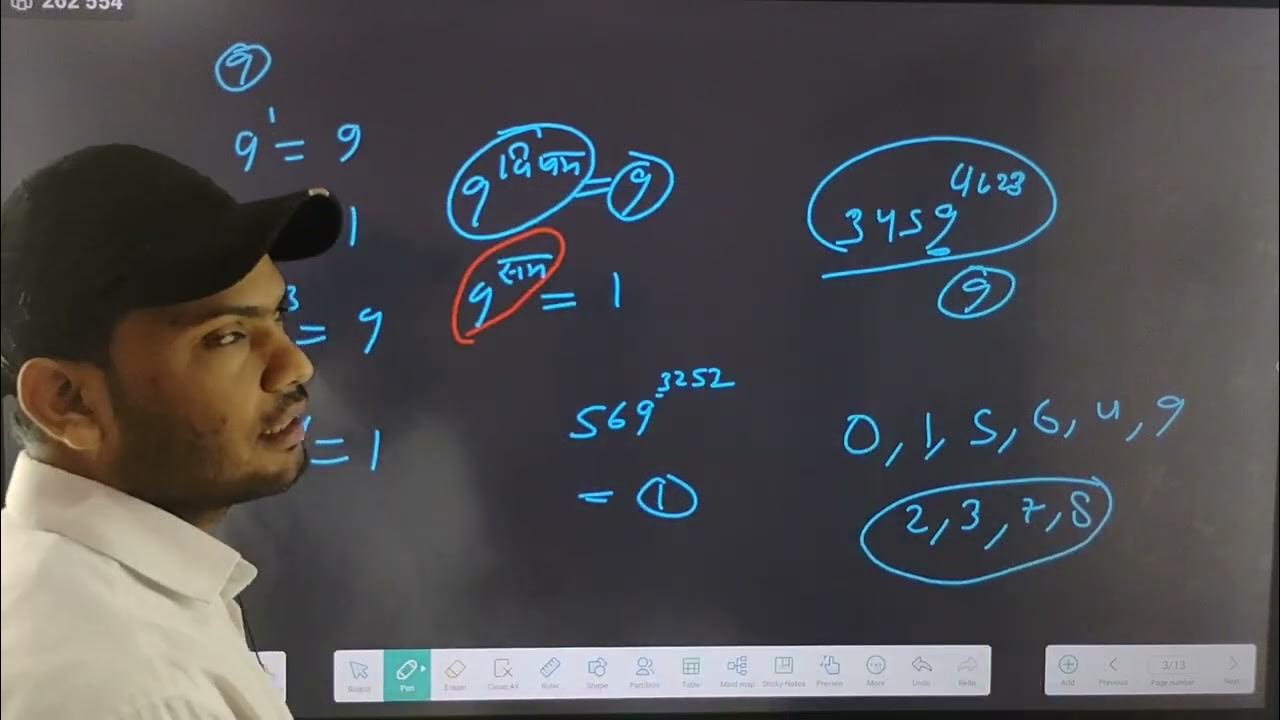 262 554
9
9¹ = 9
1
3 = 9
= 1
9^विषम = 9
9^सम = 1
569^3252
= 1
3459^4623
9
0, 1, 5, 6, 4, 9
2, 3, 7, 8
Board Pen Eraser Clean All Ruler Shape Partition Table Mind map Sticky-Notes Preview More Undo Redo
Add Previous 3/13 Page number Next